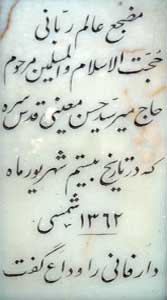 مضجع عالم ربانی
حجت الاسلام والمسلمین مرحوم
حاج میر سید حسن معینی قدس سره
که در تاریخ بیستم شهریور ماه
۱۳۶۲ شمسی
دار فانی را وداع گفت